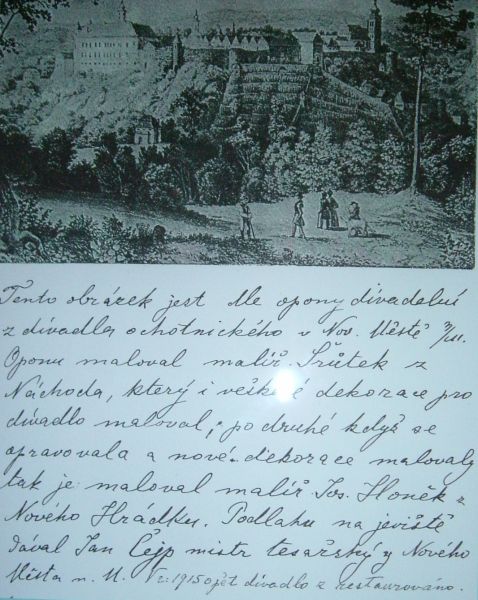 Tento obrázek jest dle opony divadelní
z divadla ochotnického v Nov. Městě n/M.
Oponu maloval malíř Šrůtek z
Náchoda, který i veškeré dekorace pro
divadlo maloval, po druhé když se
opravovala a nové dekorace malovaly
tak je maloval malíř Jos. Honěk z
Nového Hrádku. Podlahu na jeviště
dával Jan Cejp mistr tesařský z Nového
Města n. M. V r. 1915 opět divadlo z restaurováno.